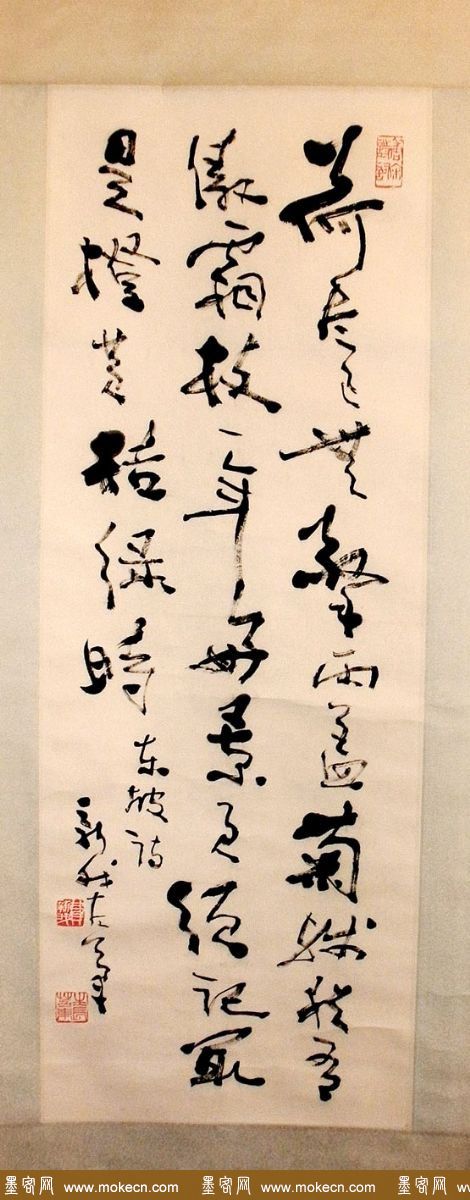 荷尽已無擎雨盖菊残犹有
傲霜枝一年好景君须记最
是橙黄桔绿時
东坡诗
墨客网 www.mokecn.com 墨客网 www.mokecn.com 墨客网